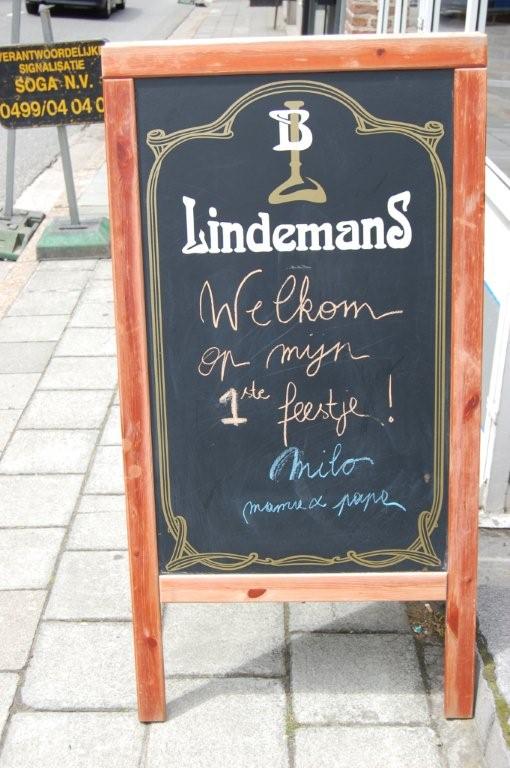 VERANTWOORDELIJKE
SIGNALISATIE
SOGA N.V.
0499/04 04 0
B
LindemanS
Welkom
op mijn
1ste feestje!
Milo
mama & papa